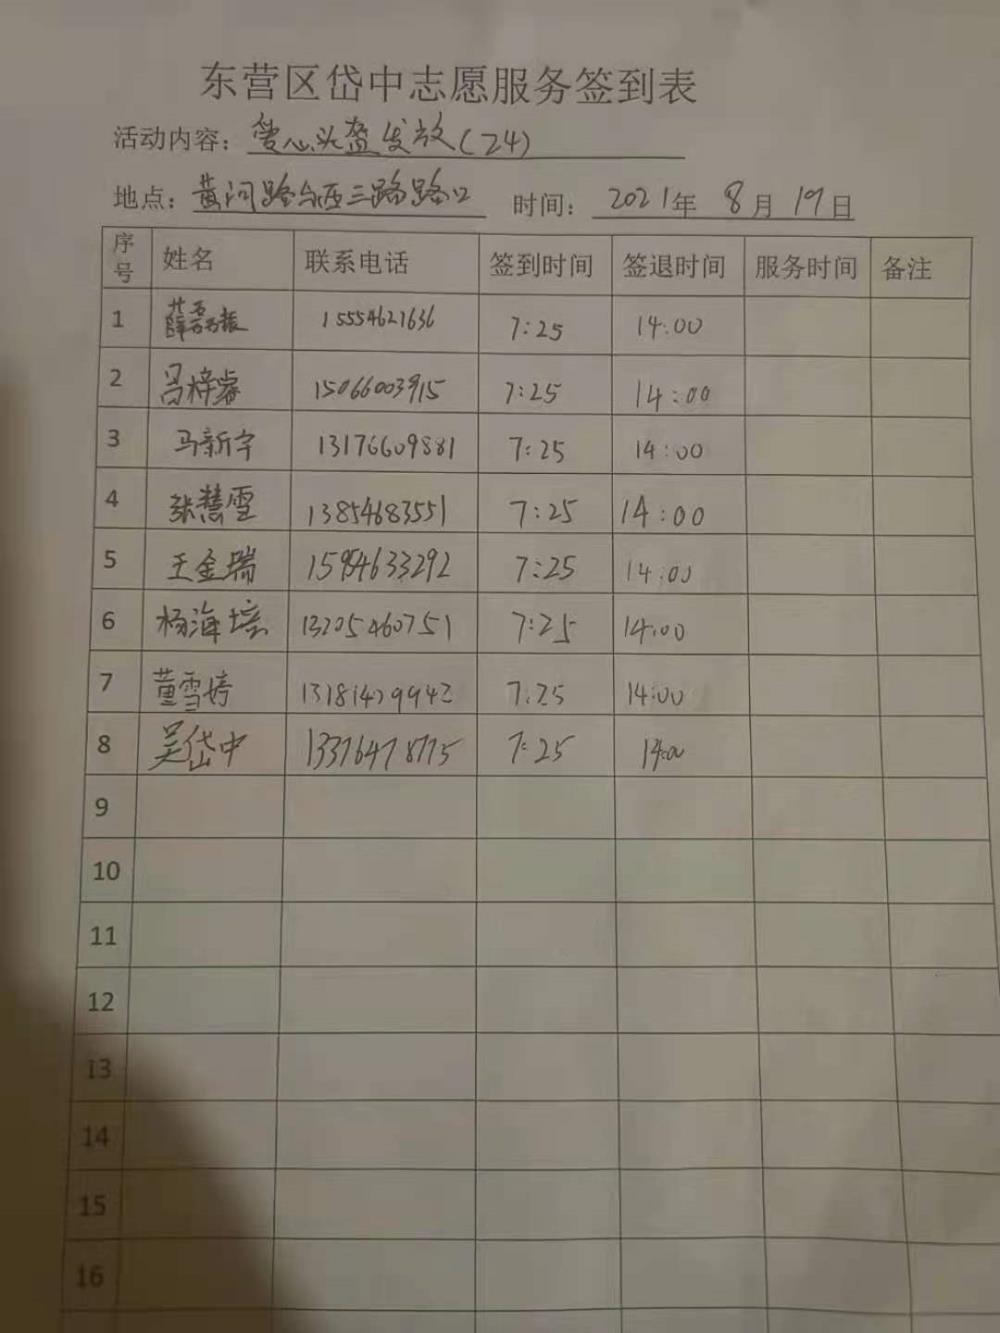 东营区岱中志愿服务签到表
活动内容：爱心头盔发放（24）
地点：黄河路西三路路口 时间：2021年8月19日
序号 姓名 联系电话 签到时间 签退时间 服务时间 备注
1 15554621636 7:25 14:00
2 吕梓睿 15066003915 7:25 14:00
3 马新宇 13176609881 7:25 14:00
4 张慧雪 13854683551 7:25 14:00
5 王金瑞 15954633292 7:25 14:00
6 杨海培 13205460751 7:25 14:00
7 董雪婷 13181429942 7:25 14:00
8 吴岱中 13376478775 7:25 14:00
9
10
11
12
13
14
15
16